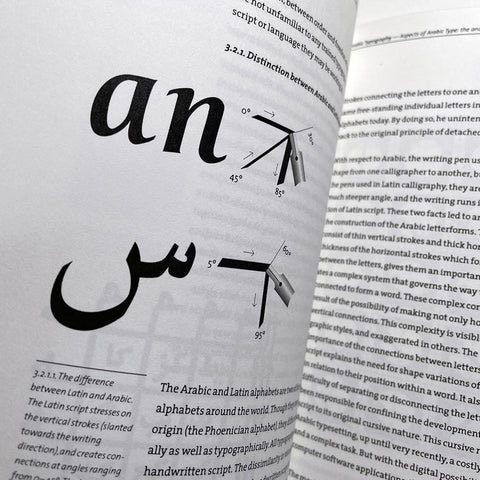 , between order and
re not unfamiliar to any trained
script or language they may be
3.2.1. Distinction between Arabic and
an
0°
30°
45°
85°
س
5°
60°
95°
3.2.1.1. The difference
between Latin and Arabic.
The Latin script stresses on
the vertical strokes (slanted
towards the writing
direction), and creates con-
nections at angles ranging
from 0° to 45°. The
The Arabic and Latin alphabets are
alphabets around the world. Though they
origin (the Phoenician alphabet), they
ally as well as typographically. All typo
handwritten script. The dissimilarity
Typography — Aspects of Arabic Type: the
strokes connecting the letters to one an
me free-standing individual letters in
alphabets today. By doing so, he uninten
back to the original principle of detached
with respect to Arabic, the writing pen us
shape from one calligrapher to another, b
the pens used in Latin calligraphy, they are
much steeper angle, and the writing runs i
tion of Latin script. These two facts led to an
the construction of the Arabic letterforms. T
consist of thin vertical strokes and thick hor
thickness of the horizontal strokes which fo
between the letters, gives them an important
ates a complex system that governs the way
connected to form a word. These complex con
result of the possibility of making not only ho
vertical connections. This complexity is visibl
graphic styles, and exaggerated in others. The
importance of the connections between letters
script explains the need for shape variations of
in relation to their position within a word. It als
difficulty of separating or disconnecting the let
en responsible for confining the development
script to its original cursive nature. This cursive n
Arabic typesetting, up until very recently, a costly
a complex task. But with the digital possibil
computer software applications